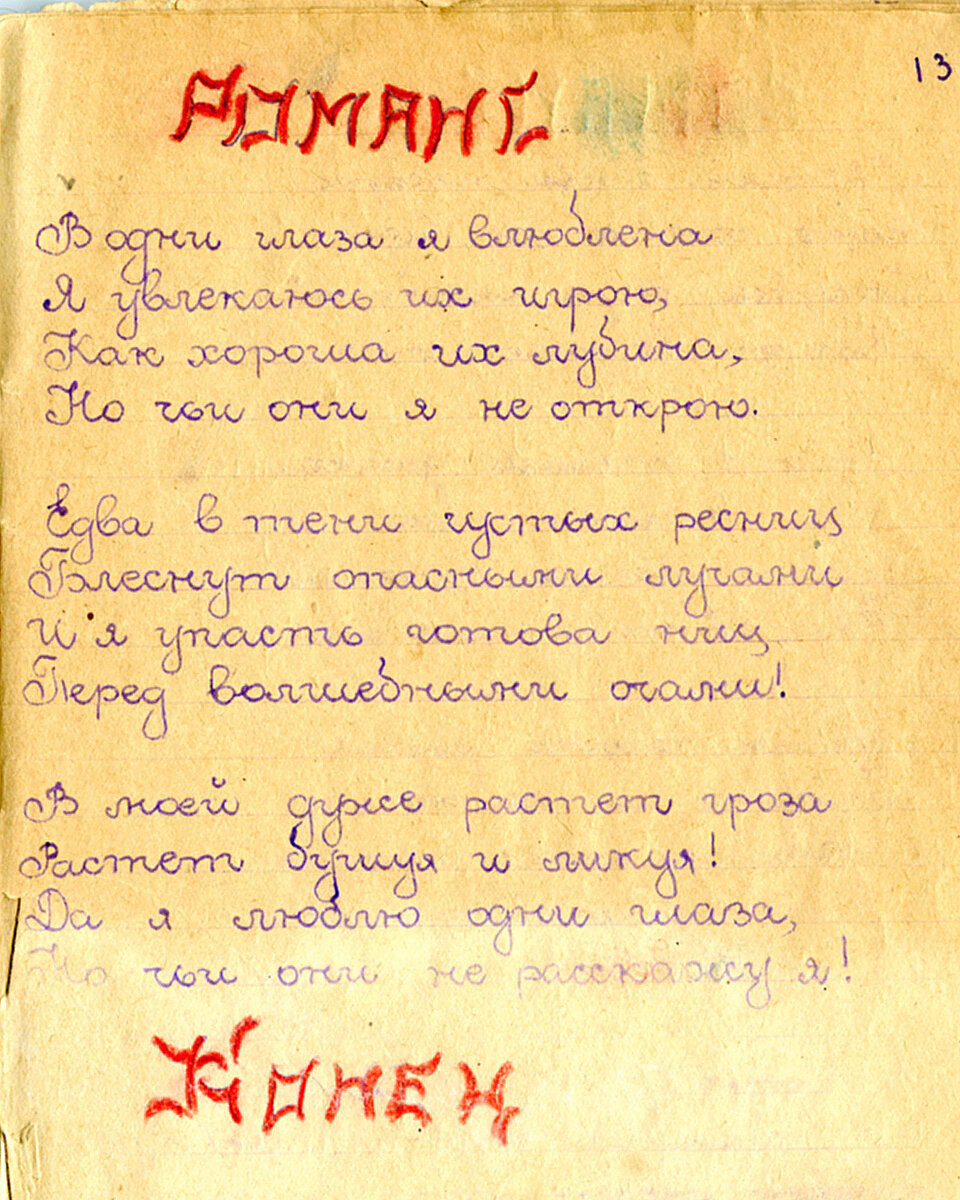 13
РОМАНС
В одни глаза я влюблена
Я увлекаюсь их игрою,
Как хороша их лубина,
Но чьи они я не открою.
Едва в тени густых ресниц
Блеснут опасными лучами
И я упасть готова ниц
Перед волшебными очами!
В моей душе растет гроза
Растет бушуя и ликуя!
Да я люблю одни глаза,
Но чьи они не расскажу я!
КОНЕЦ